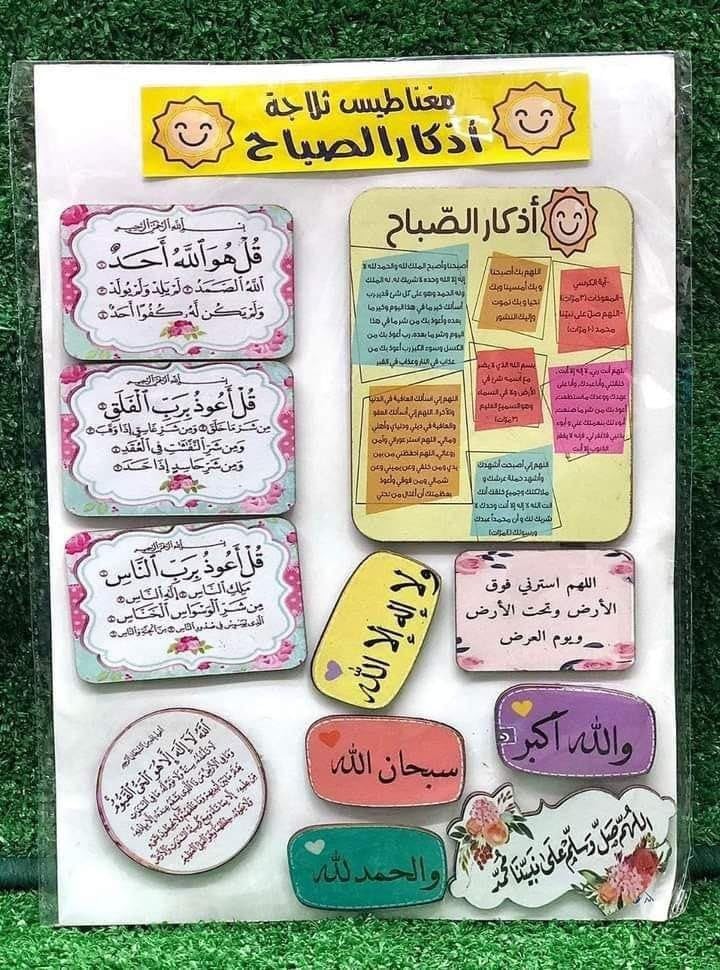 مغناطيس ثلاجة
أذكار الصباح
بسم الله الرحمن الرحيم
قُلْ هُوَ ٱللَّهُ أَحَدٌ
ٱللَّهُ ٱلصَّمَدُ لَمْ يَلِدْ وَلَمْ يُولَدْ
وَلَمْ يَكُن لَّهُۥ كُفُوًا أَحَدٌ
بسم الله الرحمن الرحيم
قُلْ أَعُوذُ بِرَبِّ ٱلْفَلَقِ
مِن شَرِّ مَا خَلَقَ وَمِن شَرِّ غَاسِقٍ إِذَا وَقَبَ
وَمِن شَرِّ ٱلنَّفَّٰثَٰتِ فِى ٱلْعُقَدِ
وَمِن شَرِّ حَاسِدٍ إِذَا حَسَدَ
بسم الله الرحمن الرحيم
قُلْ أَعُوذُ بِرَبِّ ٱلنَّاسِ
مَلِكِ ٱلنَّاسِ إِلَٰهِ ٱلنَّاسِ
مِن شَرِّ ٱلْوَسْوَاسِ ٱلْخَنَّاسِ
ٱلَّذِى يُوَسْوِسُ فِى صُدُورِ ٱلنَّاسِ مِنَ ٱلْجِنَّةِ وَٱلنَّاسِ
أذكار الصّباح
-آية الكرسي
-المعوذات (٣مرّات)
-اللهم صلّ على نبيّنا
محمد (١٠ مرّات)
اللهم بك أصبحنا
وبك أمسينا وبك
نحيا وبك نموت
وإليك النشور
أصبحنا وأصبح الملك لله والحمد لله لا
إله إلا الله وحده لا شريك له، له الملك
وله الحمد وهو على كل شئ قدير رب
أسألك خير ما في هذا اليوم وخير ما
بعده وأعوذ بك من شر ما في هذا
اليوم وشر ما بعده، رب أعوذ بك من
الكسل وسوء الكبر رب أعوذ بك من
عذاب في النار وعذاب في القبر
اللهم أنت ربي، لا إله إلا أنت،
خلقتني وأنا عبدك، وأنا على
عهدك ووعدك ما استطعت،
أعوذ بك من شر ما صنعت،
أبوء لك بنعمتك علي و أبوء
بذنبي فاغفر لي، فإنه لا يغفر
الذنوب إلا أنت
بسم الله الذي لا يضر
مع اسمه شئ في
الأرض ولا في السماء
وهو السميع العليم
(٣مرّات)
اللهم إني أسألك العافية في الدنيا
والآخرة، اللهم إني أسألك العفو
والعافية في ديني ودنياي وأهلي
ومالي، اللهم استر عوراتي وآمن
روعاتي، اللهم احفظني من بين
يدي ومن خلفي وعن يميني وعن
شمالي ومن فوقي وأعوذ
بعظمتك أن أغتال من تحتي
اللهم إني أصبحت أشهدك
وأشهد حملة عرشك و
ملائكتك وجميع خلقك أنك
أنت الله لا إله إلا أنت وحدك لا
شريك لك و أن محمداً عبدك
ورسولك
ولا إله إلا الله
اللهم استرني فوق
الأرض وتحت الأرض
ويوم العرض
والله أكبر
سبحان الله
والحمد لله
اللهُمَّ صَلِّ وَسَلِّمْ عَلَى نَبِيِّنَا مُحَمَّد
ٱللَّهُ لَا إِلَٰهَ إِلَّا هُوَ ٱلْحَىُّ ٱلْقَيُّومُ